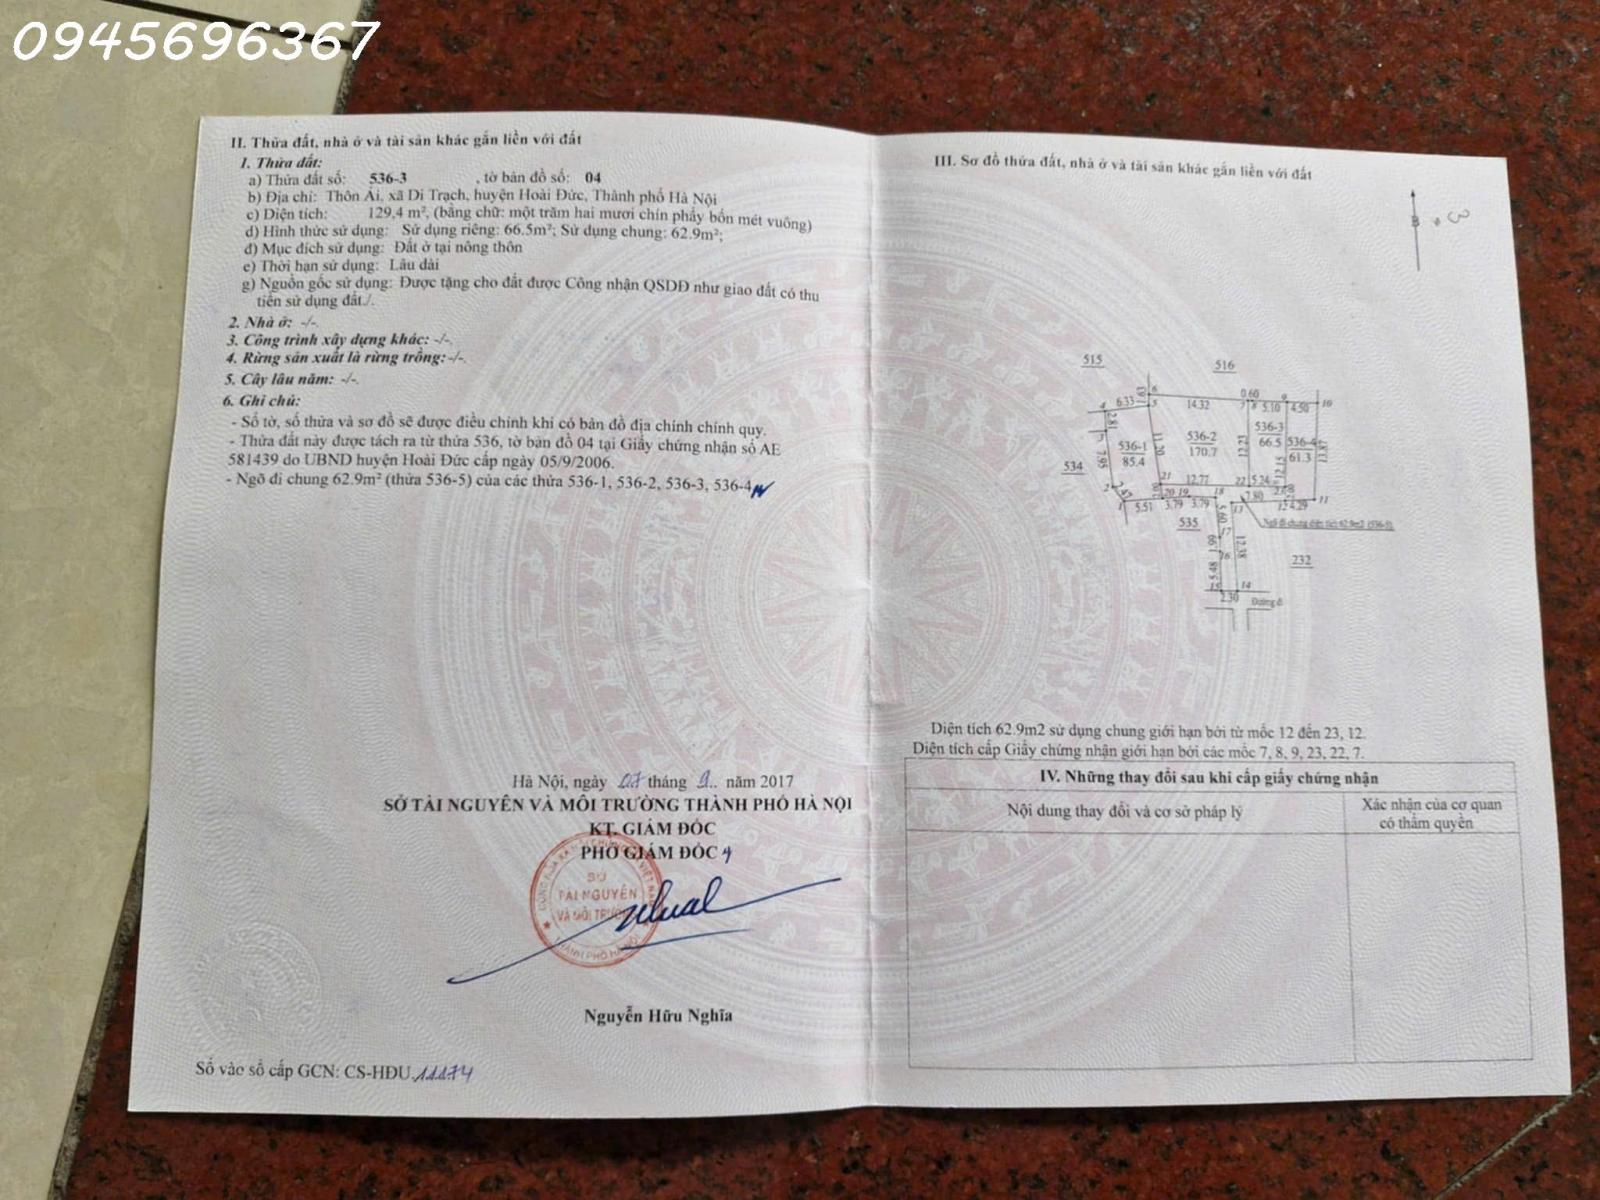 0945696367
II. Thửa đất, nhà ở và tài sản khác gắn liền với đất
1. Thửa đất:
a) Thửa đất số: 536-3 , tờ bản đồ số: 04
b) Địa chỉ: Thôn Ải, xã Di Trạch, huyện Hoài Đức, Thành phố Hà Nội
c) Diện tích: 129,4 m², (bằng chữ: một trăm hai mươi chín phẩy bốn mét vuông)
d) Hình thức sử dụng: Sử dụng riêng: 66.5m²; Sử dụng chung: 62.9m²;
đ) Mục đích sử dụng: Đất ở tại nông thôn
e) Thời hạn sử dụng: Lâu dài
g) Nguồn gốc sử dụng: Được tặng cho đất được Công nhận QSDĐ như giao đất có thu
tiền sử dụng đất./.
2. Nhà ở: -/-.
3. Công trình xây dựng khác: -/-.
4. Rừng sản xuất là rừng trồng: -/-.
5. Cây lâu năm: -/-.
6. Ghi chú:
- Số tờ, số thửa và sơ đồ sẽ được điều chỉnh khi có bản đồ địa chính chính quy.
- Thửa đất này được tách ra từ thửa 536, tờ bản đồ 04 tại Giấy chứng nhận số AE
581439 do UBND huyện Hoài Đức cấp ngày 05/9/2006.
- Ngõ đi chung 62.9m² (thửa 536-5) của các thửa 536-1, 536-2, 536-3, 536-4
Hà Nội, ngày 07 tháng 9.. năm 2017
SỞ TÀI NGUYÊN VÀ MÔI TRƯỜNG THÀNH PHỐ HÀ NỘI
KT. GIÁM ĐỐC
PHÓ GIÁM ĐỐC
SỞ
TÀI NGUYÊN
VÀ MÔI TRƯỜNG
THÀNH PHỐ HÀ NỘI
Nguyễn Hữu Nghĩa
Số vào sổ cấp GCN: CS-HĐU.11174
III. Sơ đồ thửa đất, nhà ở và tài sản khác gắn liền với đất
B
3
515
516
6
0.60
4
6.33
5
1.91
14.32
7
8
5.10
9
4.50
10
2.81
3
536-1
85.4
11.20
536-2
170.7
12.23
536-3
66.5
12.15
536-4
61.3
13.87
534
7.95
2
2.47
1
5.51
21
12.77
22
5.24
20
19
18
3.79
3.79
7.80
13
12
4.29
11
535
5.60
17
Ngõ đi chung diện tích 62.9m2 (536-5)
1.99
16
12.38
232
5.48
15
14
2.30
Đường đi
Diện tích 62.9m2 sử dụng chung giới hạn bởi từ mốc 12 đến 23, 12.
Diện tích cấp Giấy chứng nhận giới hạn bởi các mốc 7, 8, 9, 23, 22, 7.
IV. Những thay đổi sau khi cấp giấy chứng nhận
Nội dung thay đổi và cơ sở pháp lý
Xác nhận của cơ quan
có thẩm quyền